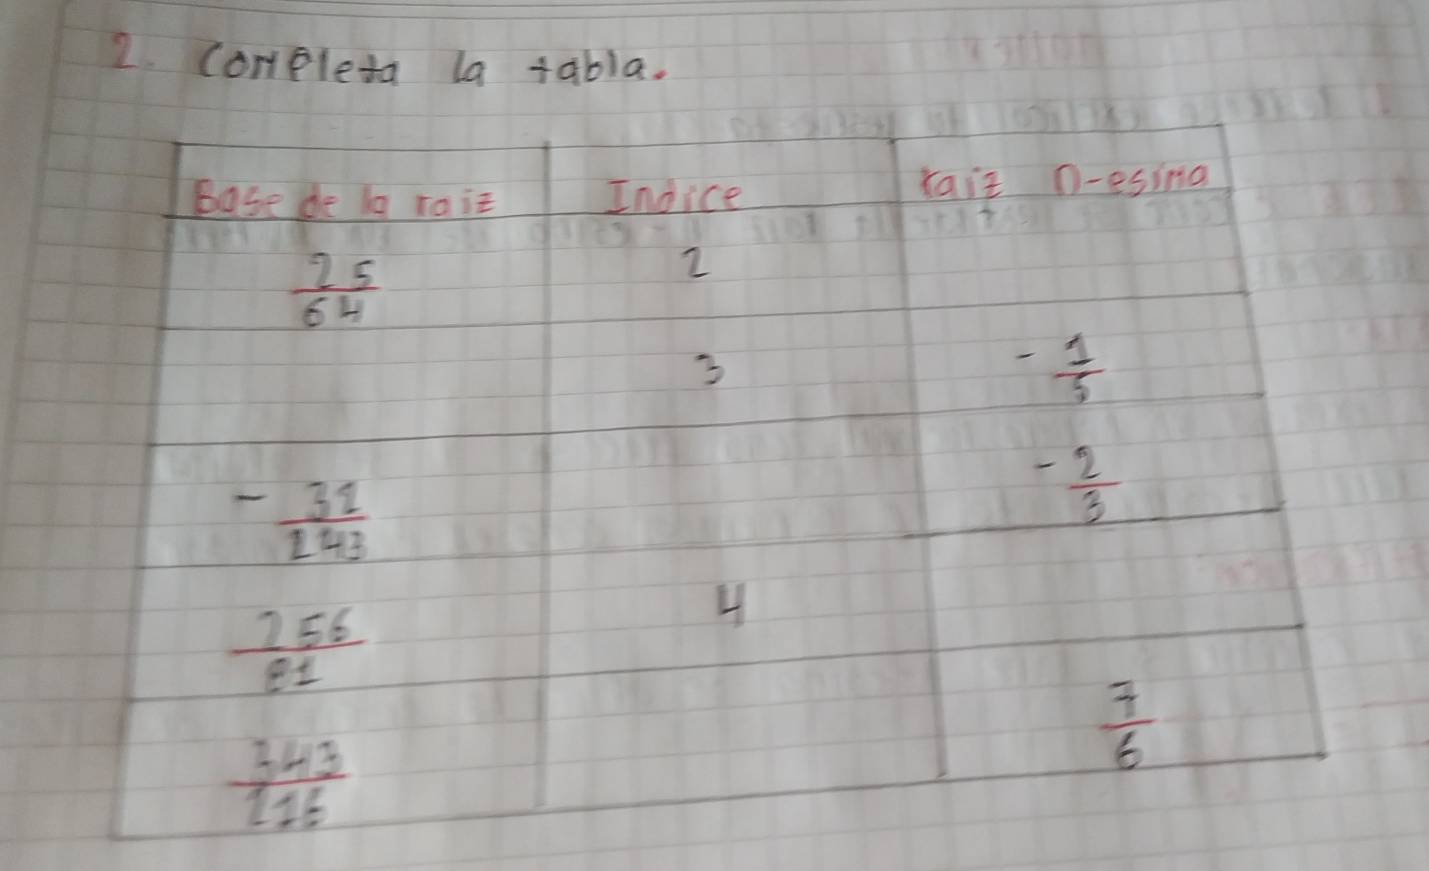 2. Completa la tabla.
Base de la raiz Indice raiz n-esima
25/64 2
3 -1/5
-32/243 -2/3
256/81 4
343/216 7/6